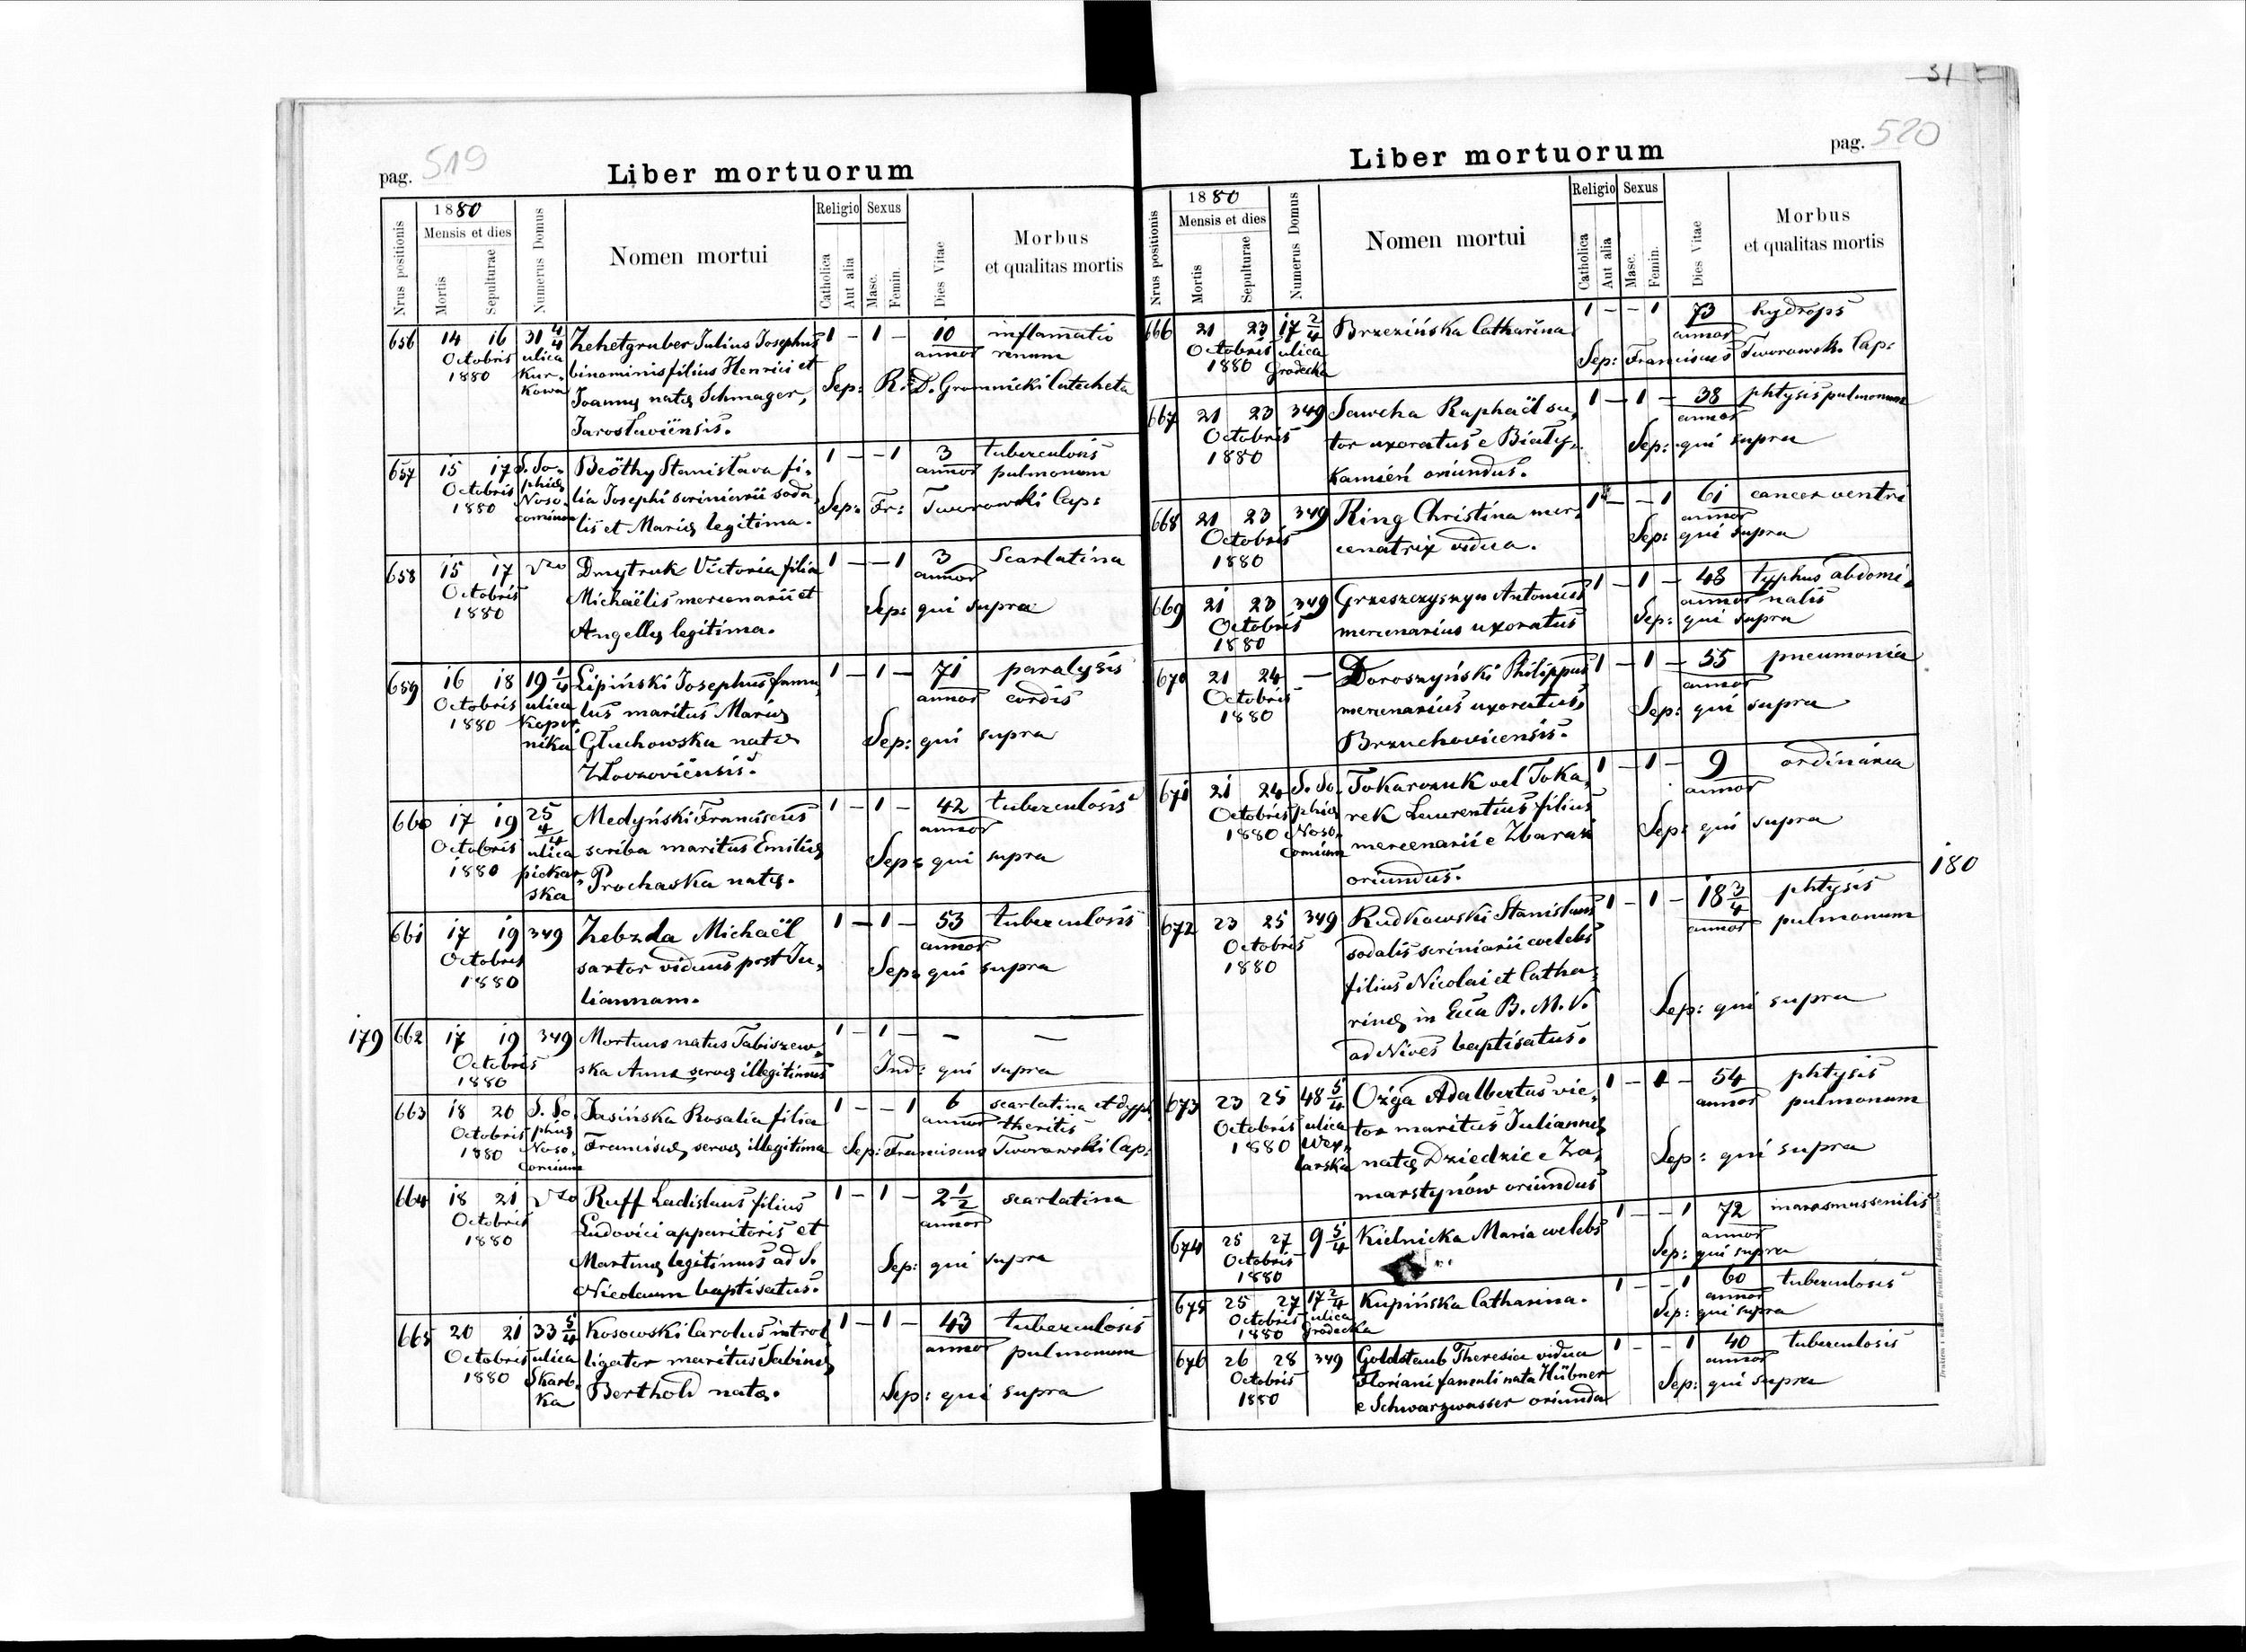 31
pag. 519
Liber mortuorum
Nrus positionis
1880
Mensis et dies
Mortis
Sepulturae
Numerus Domus
Nomen mortui
Religio
Catholica
Aut alia
Sexus
Masc.
Femin.
Dies Vitae
Morbus
et qualitas mortis
656 14 16 31 4/4 Zehetgruber Julius Josephus 1 - 1 - 10 inflamatio
Octobris ulica binominis filius Henrici et annor renum
1880 Kur- Joannæ natæ Schmager, Sep: R. D. Gromnicki Catecheta
kowa Jaroslaviensis.
657 15 17 S. So- Beöthy Stanislava fi- 1 - - 1 3 tuberculosis
Octobris phiæ lia Josephi scriniarii soda- annor pulmonum
1880 Noso- lis et Mariæ legitima. Sep: Fr: Tworowski Cap:
comium
658 15 17 Dmytruk Victoria filia 1 - - 1 3 Scarlatina
Octobris Michaëlis mercenarii et annor
1880 Angellæ legitima. Sep: qui supra
659 16 18 19 1/4 Lipiński Josephus famu- 1 - 1 - 71 paralysis
Octobris ulica lus maritus Mariæ annor cordis
1880 Koper- Głuchowska natæ Sep: qui supra
nika
660 17 19 25 4/4 Medyński Franciscus 1 - 1 - 42 tuberculosis
Octobris ulica scriba maritus Emiliæ annor
1880 piekar- Prochaska natæ. Sep: qui supra
ska
661 17 19 349 Zebzda Michaël 1 - 1 - 53 tuberculosis
Octobris sartor viduus post Ju- annor
1880 liannam. Sep: qui supra
179 662 17 19 349 Mortuus natus Tabiszew- 1 - 1 - - -
Octobris ska Anna servæ illegitimus Ind: qui supra
1880
663 18 20 S. So- Jasińska Rosalia filia 1 - - 1 6 scarlatina et dyph-
Octobris phiæ Franciscæ servæ illegitima annor theritis
1880 Noso- Sep: Franciscus Tworowski Cap:
comium
664 18 21 Ruff Ladislaus filius 1 - 1 - 2 1/2 scarlatina
Octobris Ludovici apparitoris et annor
1880 Martinæ legitimus ad S. Sep: qui supra
Nicolaum baptisatus.
665 20 21 33 5/4 Kosowski Carolus introl 1 - 1 - 43 tuberculosis
Octobris ulica ligator maritus Sabinæ annor pulmonum
1880 Skarb- Berthold natæ. Sep: qui supra
ka
pag. 520
Liber mortuorum
Nrus positionis
1880
Mensis et dies
Mortis
Sepulturae
Numerus Domus
Nomen mortui
Religio
Catholica
Aut alia
Sexus
Masc.
Femin.
Dies Vitae
Morbus
et qualitas mortis
666 21 23 17 2/4 Brzezińska Catharina 1 - - 1 73 hydrops
Octobris ulica annor
1880 Grodecka Sep: Franciscus Tworowsk. Cap:
667 21 23 349 Sawcha Raphaël su- 1 - 1 - 38 phtysis pulmonum
Octobris tor uxoratus e Biały- annor
1880 kamień oriundus. Sep: qui supra
668 21 23 349 Ring Christina mer- 1 - - 1 61 cancer ventri
Octobris cenatrix vidua. annor
1880 Sep: qui supra
669 21 23 349 Grzeszczyszyn Antonius 1 - 1 - 48 typhus abdomi-
Octobris mercenarius uxoratus annor nalis
1880 Sep: qui supra
670 21 24 - Doroszyński Philippus 1 - 1 - 55 pneumonia
Octobris mercenarius uxoratus, annor
1880 Brzuchovicensis. Sep: qui supra
671 21 24 S. So- Tokarczuk vel Toka- 1 - 1 - 9 ordinaria
Octobris phiæ rek Laurentius filius annor
1880 Noso- mercenarii e Zbaraż Sep: qui supra
comium oriundus.
180
672 23 25 349 Rudkowski Stanislaus 1 - 1 - 18 3/4 phtysis
Octobris sodalis scriniarii coelebs annor pulmonum
1880 filius Nicolai et Catha-
rinæ in Ecca B. M. V. Sep: qui supra
ad Nives baptisatus.
673 23 25 48 5/4 Ożga Adalbertus vie- 1 - 1 - 54 phtysis
Octobris ulica tor maritus Juliannæ annor pulmonum
1880 Wex- natæ Dziedzic e Za- Sep: qui supra
larska marstynów oriundus
674 25 27 9 5/4 Kielnicka Maria coelebs 1 - - 1 72 marasmus senilis
Octobris annor
1880 Sep: qui supra
675 25 27 17 2/4 Kupińska Catharina. 1 - - 1 60 tuberculosis
Octobris ulica annor
1880 Grodecka Sep: qui supra
676 26 28 349 Goldstaub Theresia vidua 1 - - 1 40 tuberculosis
Octobris Floriani famuli nata Hübner annor
1880 e Schwarzwasser oriunda Sep: qui supra